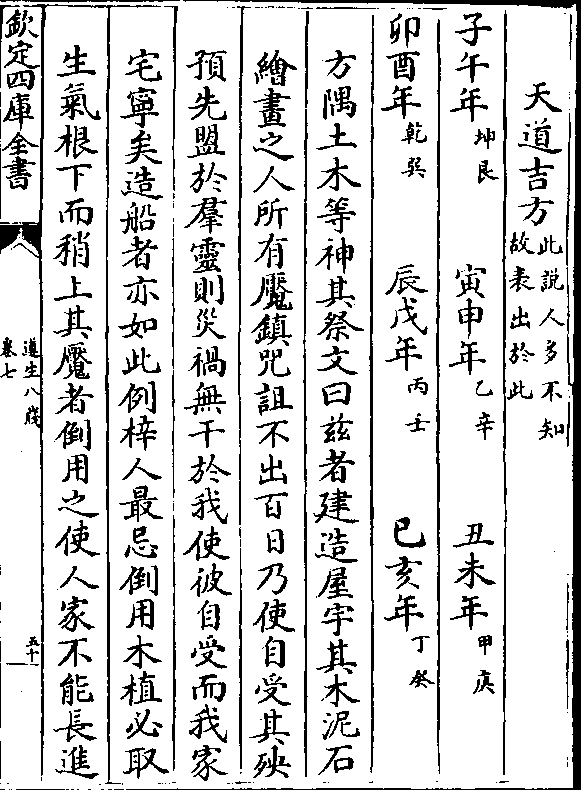 天道吉方此說人多不知故表出於此
子午年坤艮 寅申年乙辛 丑未年甲庚
卯酉年乾巽 辰戌年丙壬 巳亥年丁癸
方隅土木等神其祭文曰兹者建造屋宇其木泥石
繪畫之人所有魘鎮咒詛不出百日乃使自受其殃
預先盟於羣靈則災禍無干於我使彼自受而我家
宅寧矣造船者亦如此例梓人最忌倒用木植必取
生氣根下而稍上其魘者倒用之使人家不能長進
欽定四庫全書
遵生八牋
卷七
五十一